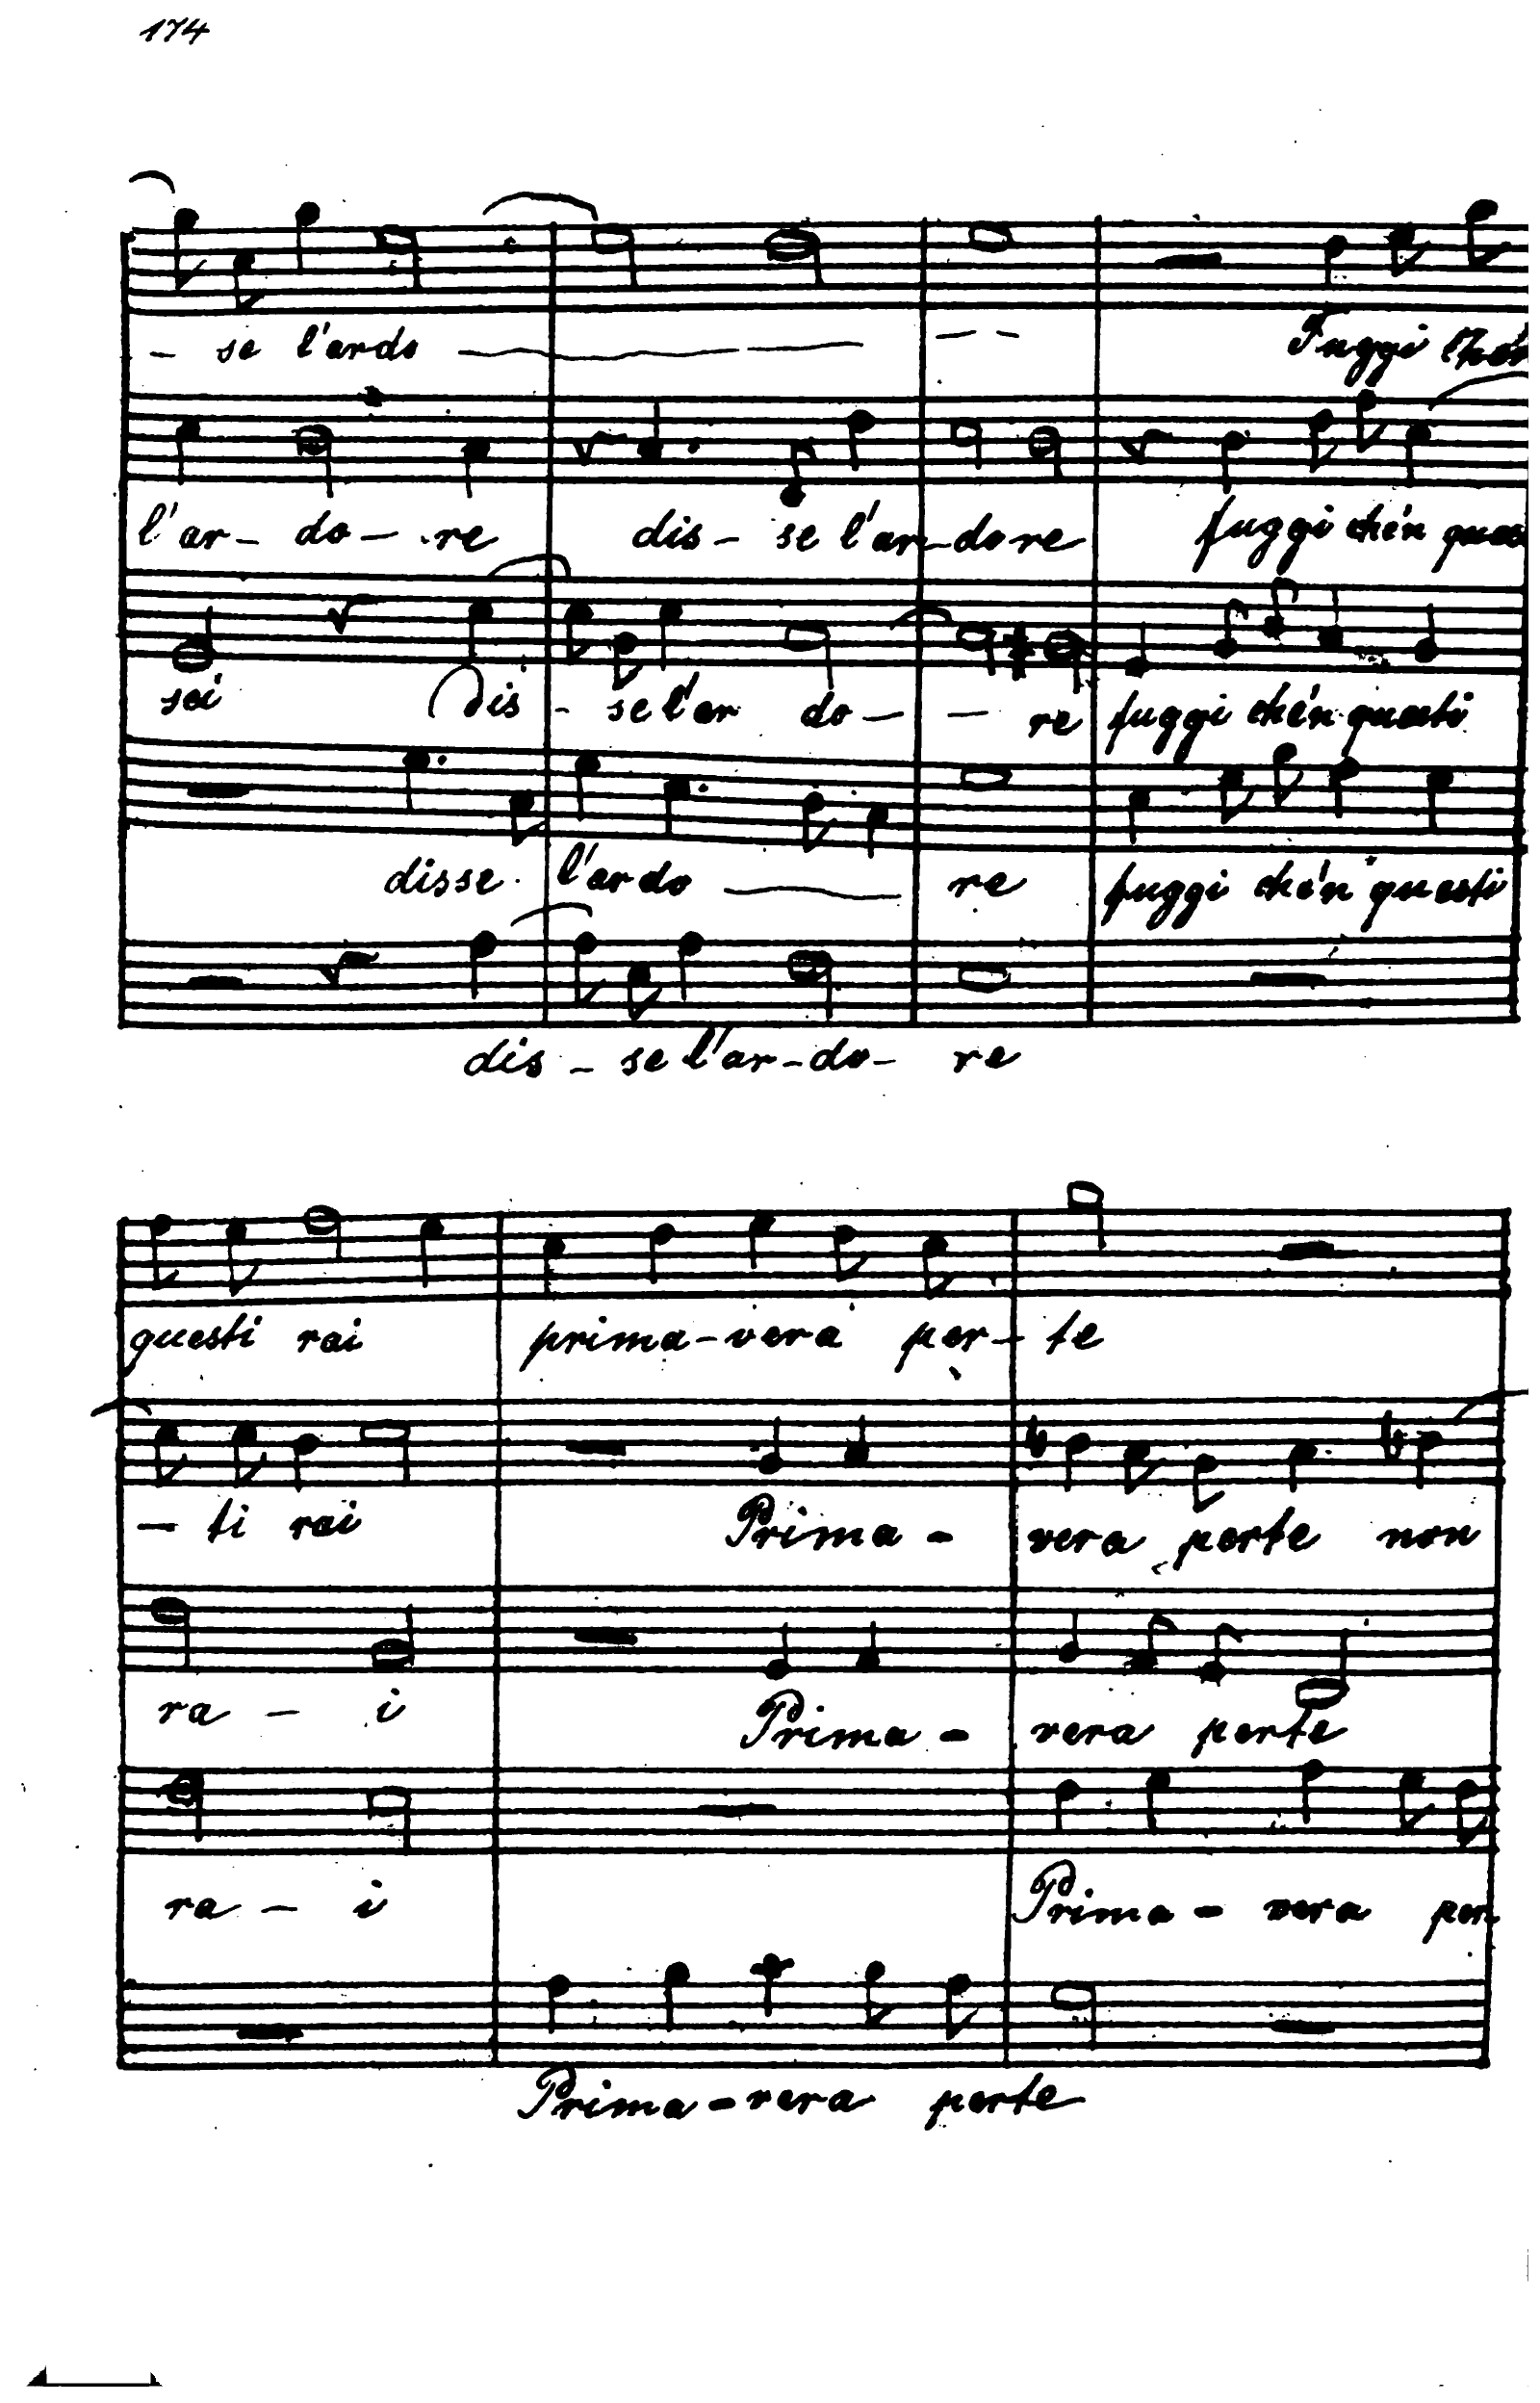 174
- se l'ardo - - - Fuggi chén
l'ar - do - re dis - se l'ar - do re fuggi chén ques
sei Dis - se l'ar do - - re fuggi chén questi
disse l'ardo - re fuggi chén questi
dis - se l'ar - do - re
questi rai prima - vera per - te
- ti rai Prima - vera perte non
ra - i Prima - vera perte
ra - i Prima - vera per
Prima - vera perte